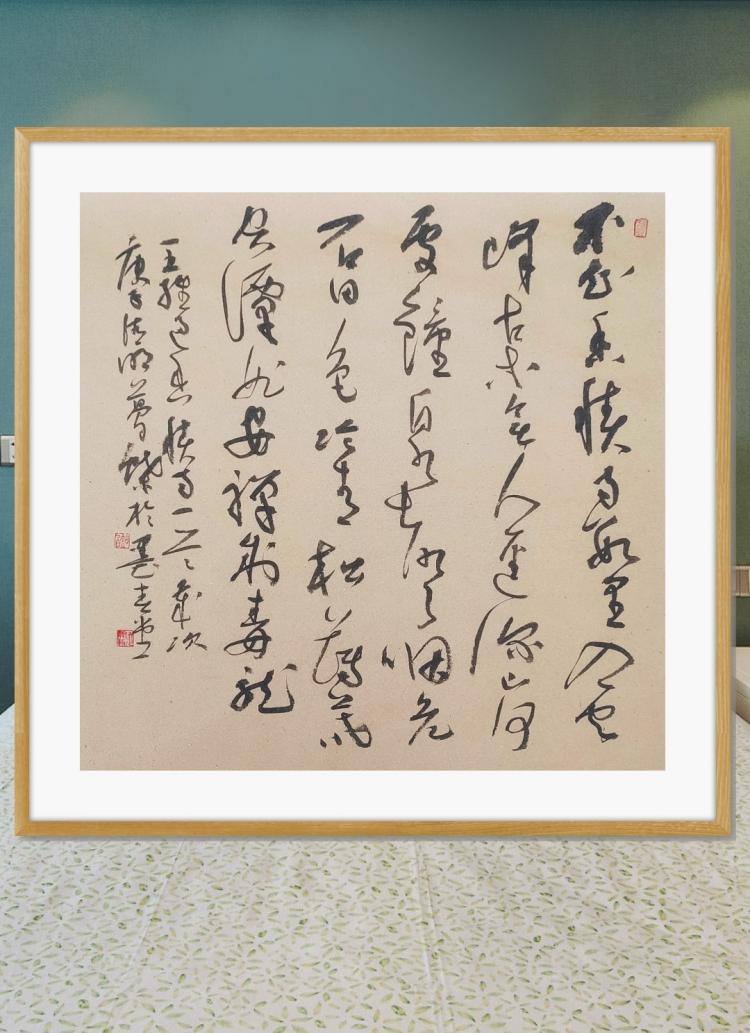 不知香積寺數里入雲
峰古木無人逕深山何
處鐘泉聲咽危
石日色冷青松薄暮
空潭曲安禪制毒龍
王維過香積寺一首歲次
庚子清明夢蝶於墨堂